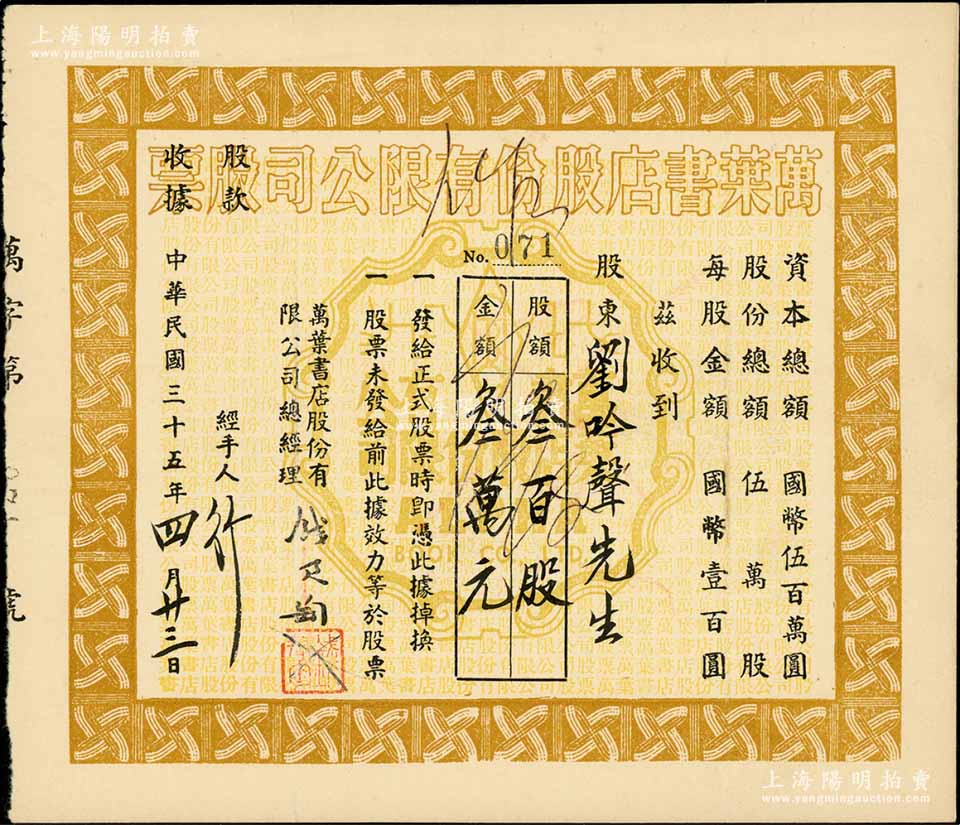 上海陽明拍賣
www.yangmingauction.com
萬葉書店股份有限公司股票
資本總額 國幣伍百萬圓
股份總額 伍萬股
每股金額 國幣壹百圓
茲收到
股東劉吟聲先生
No. 071
股額 叁百股
金額 叁萬元
一 發給正式股票時卽憑此據掉換
一 股票未發給前此據效力等於股票
萬葉書店股份有
限公司總經理 錢君匋
經手人
中華民國三十五年四月廿三日
股款
收據
萬字第 號
BOOK CO., LTD.
上海陽明拍賣
www.yangmingauction.com
上海陽明拍賣
www.yangmingauction.com